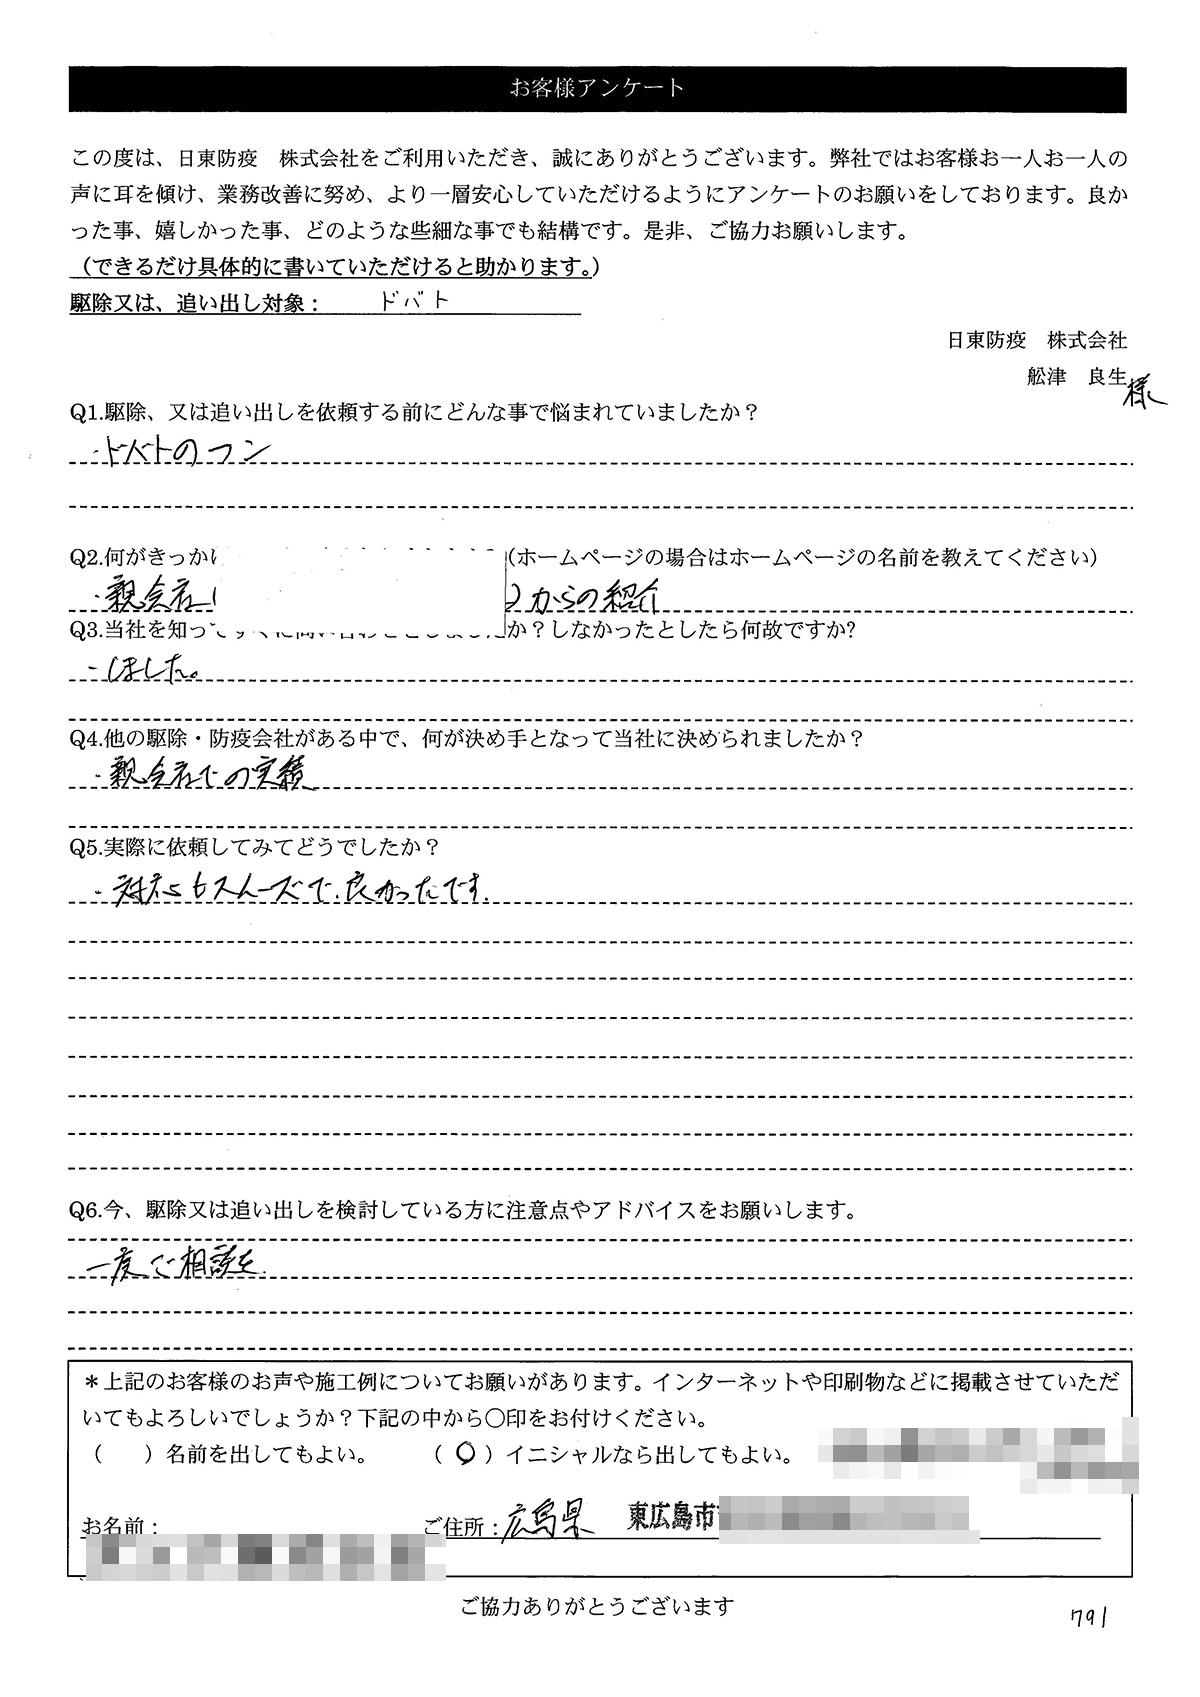 お客様アンケート
この度は、日東防疫　株式会社をご利用いただき、誠にありがとうございます。弊社ではお客様お一人お一人の
声に耳を傾け、業務改善に努め、より一層安心していただけるようにアンケートのお願いをしております。良か
った事、嬉しかった事、どのような些細な事でも結構です。是非、ご協力お願いします。
（できるだけ具体的に書いていただけると助かります。）
駆除又は、追い出し対象： ドバト
日東防疫　株式会社
舩津　良生様
Q1.駆除、又は追い出しを依頼する前にどんな事で悩まれていましたか？
・ドバトのフン
Q2.何がきっかけ (ホームページの場合はホームページの名前を教えてください）
・親会社( )からの紹介
Q3.当社を知ってすぐに問い合わせをしましたか？しなかったとしたら何故ですか?
・しました。
Q4.他の駆除・防疫会社がある中で、何が決め手となって当社に決められましたか？
・親会社での実績
Q5.実際に依頼してみてどうでしたか？
・対応もスムーズで、良かったです。
Q6.今、駆除又は追い出しを検討している方に注意点やアドバイスをお願いします。
一度ご相談を.
＊上記のお客様のお声や施工例についてお願いがあります。インターネットや印刷物などに掲載させていただ
いてもよろしいでしょうか？下記の中から〇印をお付けください。
（　　）名前を出してもよい。　　（〇）イニシャルなら出してもよい。
お名前： ご住所：広島県 東広島市
ご協力ありがとうございます
791